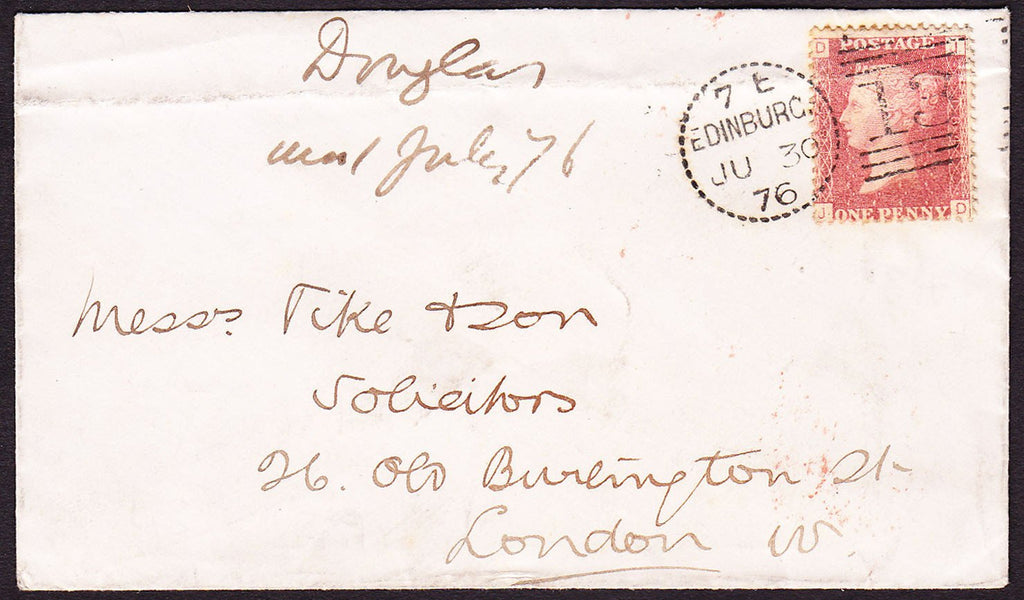 Douglas
July 76
Messrs Tike & Son
Solicitors
26. Old Burlington St
London W.
7 E
EDINBURG
JU 30
76
D POSTAGE
13
J ONE PENNY D